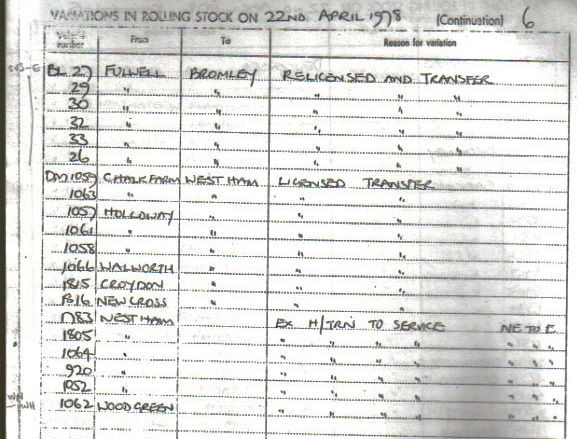 VARIATIONS IN ROLLING STOCK ON 22ND. APRIL 1978 (Continuation) 6
number From To Reason for variation
BL 27 FULWELL BROMLEY RELICENSED AND TRANSFER
29 " " " " "
30 " " " " "
32 " " " " "
33 " " " " "
26 " " " " "
DM 1059 CHALK FARM WEST HAM LICENSED TRANSFER
1063 " " " "
1057 HOLLOWAY " " "
1061 " " " "
1058 " " " "
1066 WALWORTH " " "
1815 CROYDON " " "
1816 NEW CROSS " " "
1783 WEST HAM EX H/TRN TO SERVICE NE TO E.
1805 " " " " " " " "
1064 " " " " " " " "
920 " " " " " " " "
1052 " " " " " " " "
WN
WH
1062 WOOD GREEN " " " " " " "